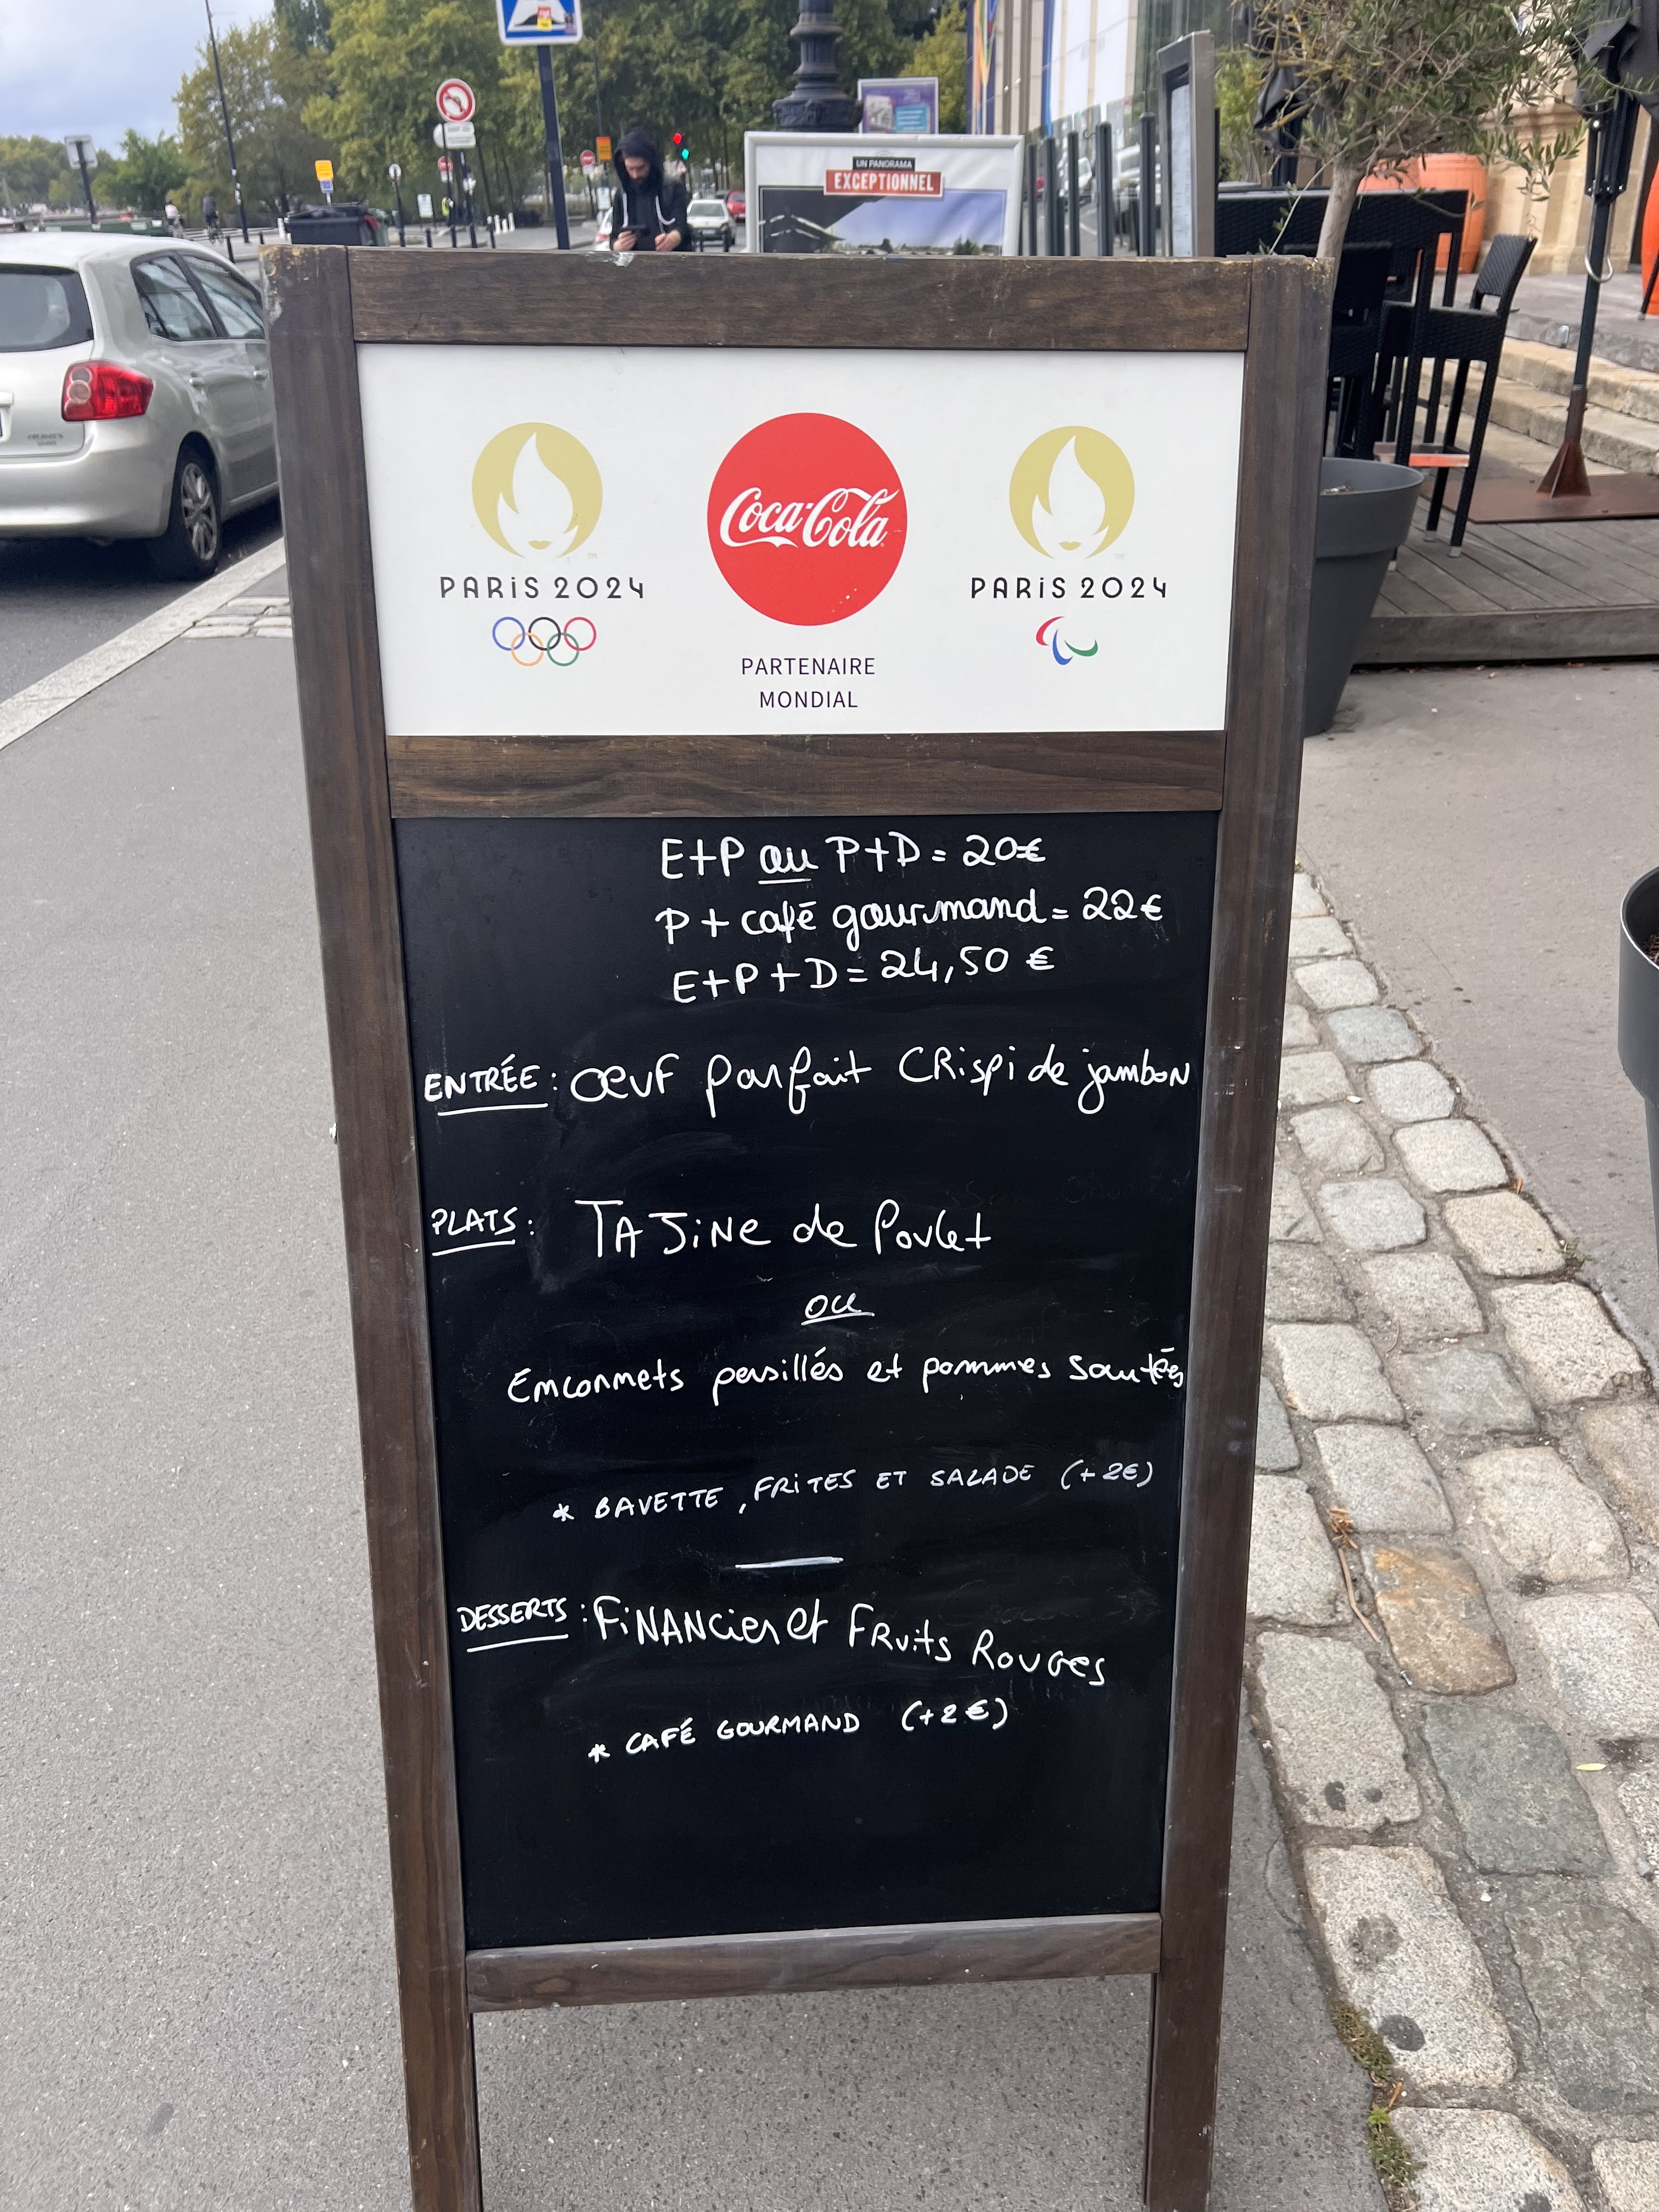 UN PANORAMA
EXCEPTIONNEL
PARIS 2024
Coca-Cola
PARTENAIRE
MONDIAL
PARIS 2024
E+P ou P+D = 20€
P + café gourmand = 22€
E+P+D = 24,50 €
ENTRÉE : Œuf parfait CRispi de jambon
PLATS : TAJiNe de Poulet
ou
Emconnets persillés et pommes sautées
* BAVETTE, FRITES ET SALADE (+2€)
DESSERTS : FiNANcier et FRuits Rouges
* CAFÉ GOURMAND (+2€)